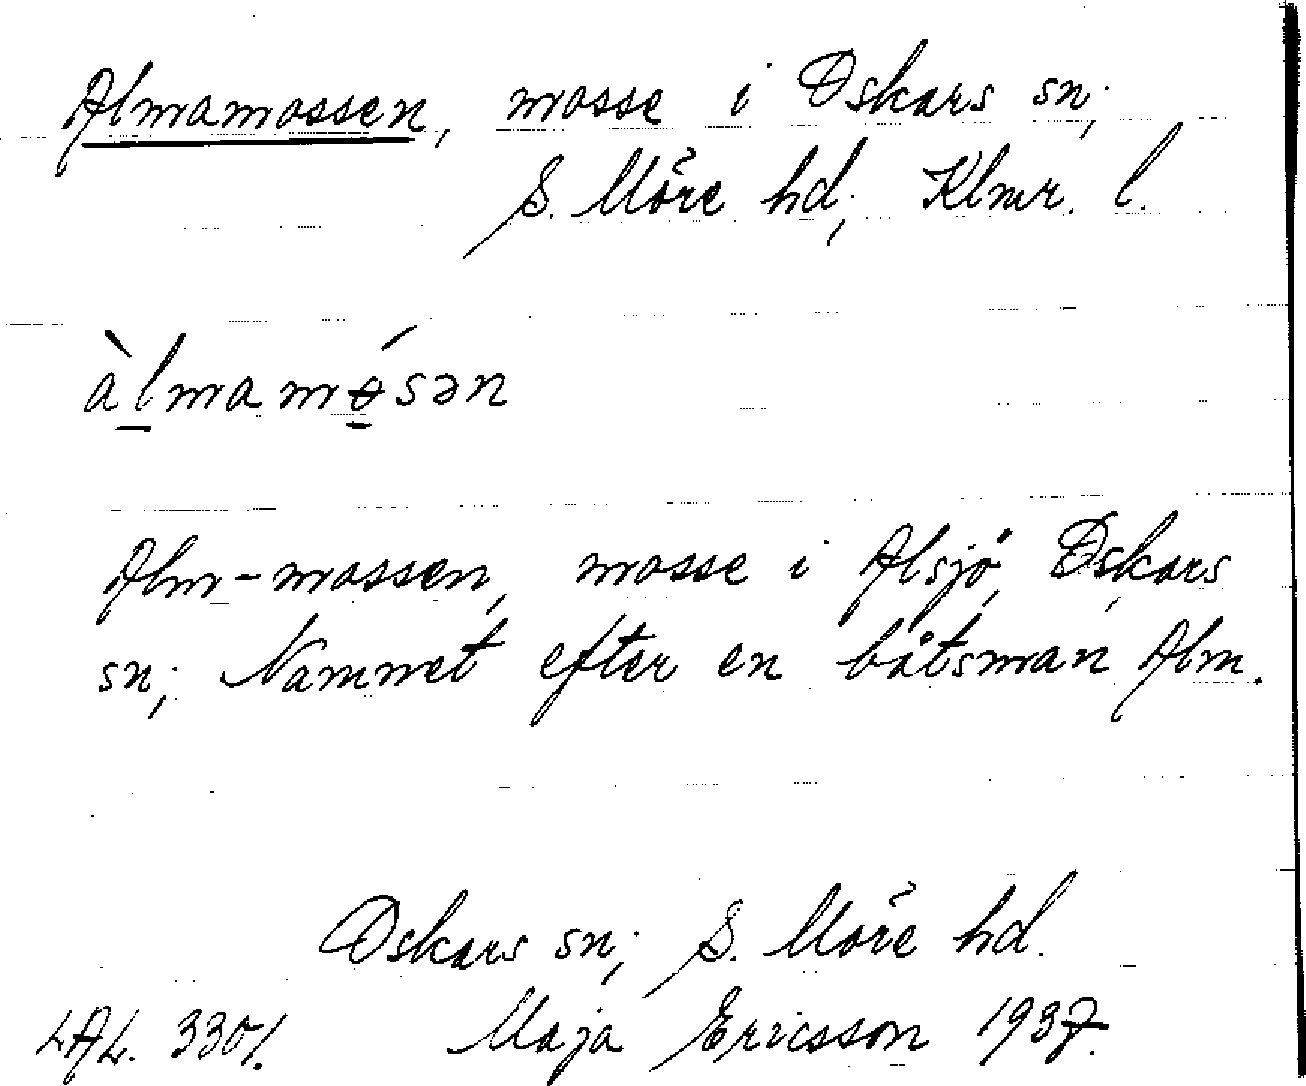 Almamossen, mosse i Oskars sn;
S. Möre hd; Klmr. l.
àlmamө́sən
Alm-mossen, mosse i Alsjö, Oskars
sn; Namnet efter en båtsman Alm.
Oskars sn; S. Möre hd.
LAL. 3301. Maja Ericsson 1937.